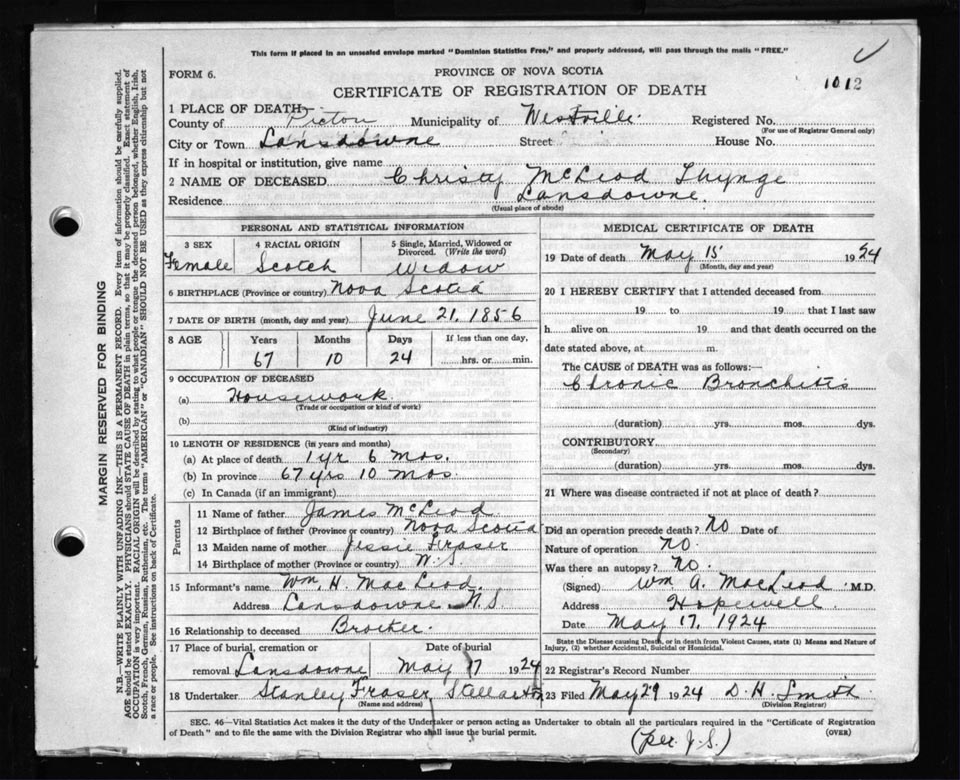 This form if placed in an unsealed envelope marked "Dominion Statistics Free," and properly addressed, will pass through the mails "FREE."
FORM 6.
PROVINCE OF NOVA SCOTIA
CERTIFICATE OF REGISTRATION OF DEATH
1012
1 PLACE OF DEATH:
County of Pictou Municipality of Westville Registered No.
(For use of Registrar General only)
City or Town Lansdowne Street House No.
If in hospital or institution, give name
2 NAME OF DECEASED Christy McLeod Thynge
Residence Lansdowne.
(Usual place of abode)
PERSONAL AND STATISTICAL INFORMATION
3 SEX 4 RACIAL ORIGIN 5 Single, Married, Widowed or Divorced. (Write the word)
Female Scotch Widow
6 BIRTHPLACE (Province or country) Nova Scotia
7 DATE OF BIRTH (month, day and year) June 21. 1856
8 AGE Years Months Days If less than one day,
67 10 24 hrs. or min.
9 OCCUPATION OF DECEASED
(a) Housework.
(Trade or occupation or kind of work)
(b)
(Kind of industry)
10 LENGTH OF RESIDENCE (in years and months)
(a) At place of death 1 yr 6 mos.
(b) In province 67 yrs 10 mos.
(c) In Canada (if an immigrant)
Parents
11 Name of father James McLeod
12 Birthplace of father (Province or country) Nova Scotia
13 Maiden name of mother Jessie Fraser
14 Birthplace of mother (Province or country) N.S.
15 Informant's name Wm. H. MacLeod.
Address Lansdowne N.S.
16 Relationship to deceased Brother.
17 Place of burial, cremation or Date of burial
removal Lansdowne May 17 1924
18 Undertaker Stanley Fraser, Stellarton
(Name and address)
MEDICAL CERTIFICATE OF DEATH
19 Date of death May 15 1924
(Month, day and year)
20 I HEREBY CERTIFY that I attended deceased from
19 to 19 that I last saw
h alive on 19 and that death occurred on the
date stated above, at m.
The CAUSE of DEATH was as follows:
Chronic Bronchitis
(duration) yrs. mos. dys.
CONTRIBUTORY
(Secondary)
(duration) yrs. mos. dys.
21 Where was disease contracted if not at place of death?
Did an operation precede death? No Date of
Nature of operation No
Was there an autopsy? No.
(Signed) Wm A. MacLeod M.D.
Address Hopewell
Date May 17, 1924
State the Disease causing Death, or in death from Violent Causes, state (1) Means and Nature of
Injury, (2) whether Accidental, Suicidal or Homicidal.
22 Registrar's Record Number
23 Filed May 29 1924 D. H. Smith
(Division Registrar)
SEC. 46—Vital Statistics Act makes it the duty of the Undertaker or person acting as Undertaker to obtain all the particulars required in the "Certificate of Registration
of Death" and to file the same with the Division Registrar who shall issue the burial permit. (OVER)
(per. J. S.)
MARGIN RESERVED FOR BINDING
N.B.—WRITE PLAINLY WITH UNFADING INK—THIS IS A PERMANENT RECORD. Every item of information should be carefully supplied.
AGE should be stated EXACTLY. PHYSICIANS should STATE CAUSE OF DEATH in plain terms, so that it may be properly classified. Exact statement of
OCCUPATION is very important. RACIAL ORIGIN will be described by stating to what people or tongue the deceased person belonged, whether English, Irish,
Scotch, French, German, Russian, Ruthenian, etc. The terms "AMERICAN" or "CANADIAN" SHOULD NOT BE USED as they express citizenship but not
a race or people. See instructions on back of Certificate.